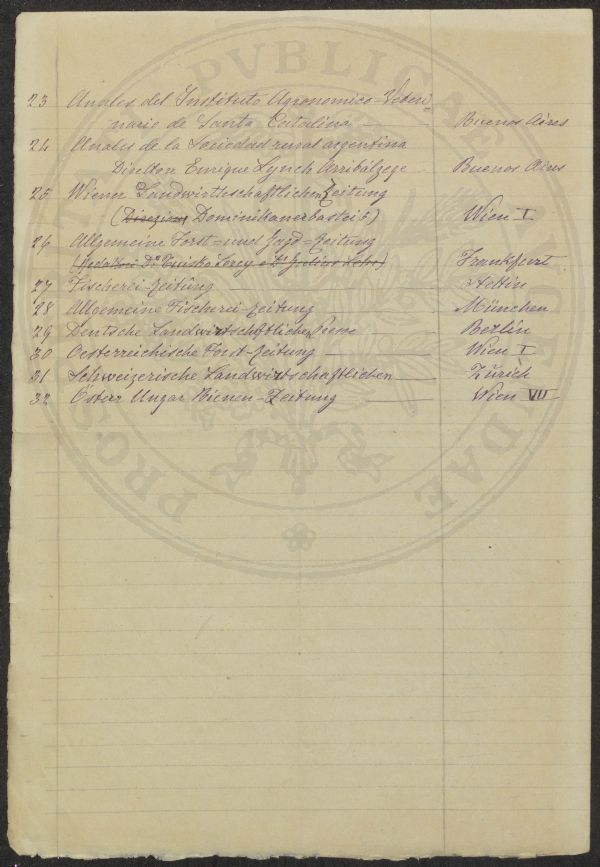 23 Anales del Instituto Agronomico-Veteri-
nario de Santa Catalina — Buenos Aires
24 Anales de la Sociedad rural argentina
Direttore Enrique Lynch Arribálzaga - Buenos Aires
25 Wiener Landwirtschaftlichen Zeitung
(Direzione Dominikanerbastei 5) Wien I
26 Allgemeine Forst= und Jagd=Zeitung
Lorey Lehr) Frankfurt
27 Fischerei-Zeitung — Stettin
28 Allgemeine Fischerei-Zeitung — München
29 Deutsche Landwirtschaftlichen — Berlin
30 Oesterreichische Forst-Zeitung — Wien I
31 Schweizerische Landwirtschaftlichen — Zürich
32 Österr Ungar Bienen-Zeitung — Wien VII